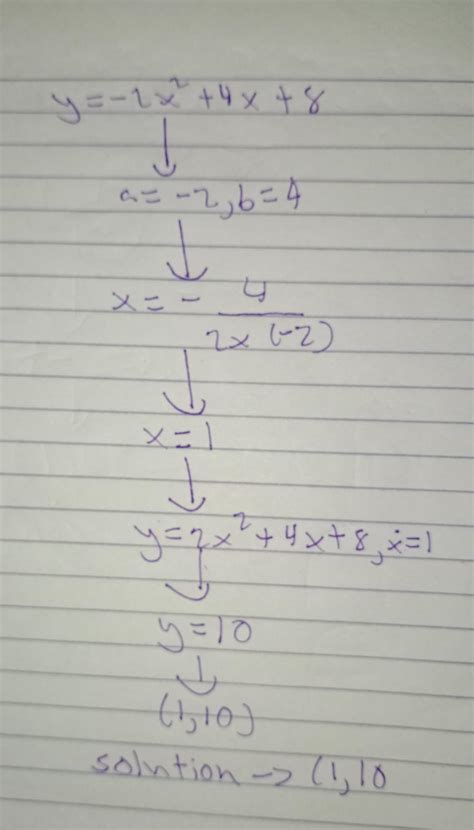 y=-2x²+4x+8
↓
a=-2,b=4
↓
x=- 4
2x(-2)
↓
x=1
↓
y=2x²+4x+8,x=1
↓
y=10
↓
(1,10)
solntion → (1,10